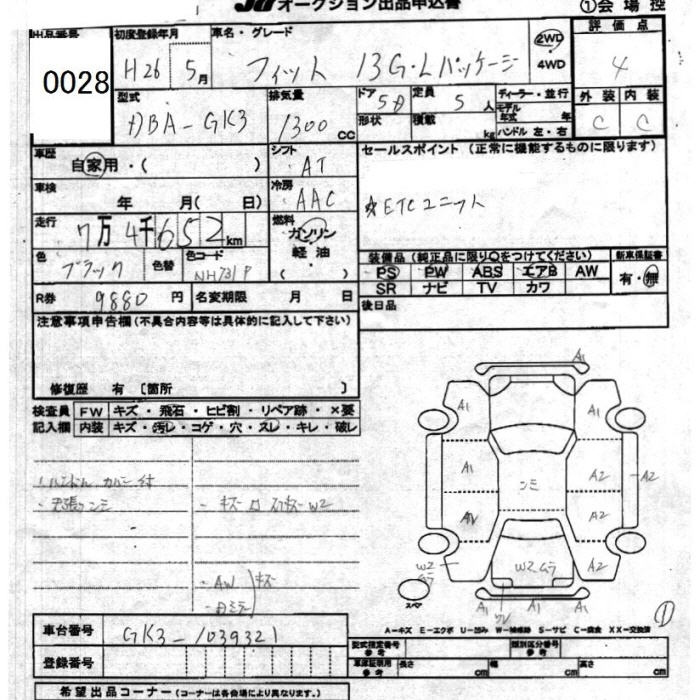 オークション出品申込書 ①会場控
出品番号 初度登録年月 車名・グレード 評価点
0028 H26 5月 フィット 13G・Lパッケージ 2WD 4WD 4
型式 排気量 ドア 定員 ディーラー・並行 外装 内装
DBA-GK3 1300cc 5D 5人 モデル年式 年 C C
形状 積載 kg ハンドル 左・右
車歴 シフト セールスポイント(正常に機能するものに限ります)
自家用・( ) AT
車検 冷房
年 月( 日) AAC ☆ETCユニット
走行 燃料
7万4千652km ガソリン
色 色替 色コード 軽油 装備品(純正品に限り○をつけてください) 新車保証書
ブラック NH731P ( ) PS PW ABS エアB AW 有・無
R券 9880円 名変期限 月 日 SR ナビ TV カワ
後日品
注意事項申告欄(不具合内容等は具体的に記入して下さい)
修復歴 有 〔箇所 〕
検査員 FW キズ・飛石・ヒビ割・リペア跡・×要
記入欄 内装 キズ・汚レ・コゲ・穴・スレ・キレ・破レ
ハンドルカバー付
天張シミ
・AW キズ
・ドミラ
A1
A1 A1
A1 シミ A2 A2
A2
W2 W2 A2
A1 A1
スペア
A-キズ E-エクボ U-凹み W-補修跡 S-サビ C-腐食 XX-交換済
①
車台番号 GK3-1039321
型式指定番号 参考 類別区分番号 参考
登録番号
車庫証明用 参考 長さ cm 幅 cm 高さ cm
希望出品コーナー(コーナーは各会場により異なります。)